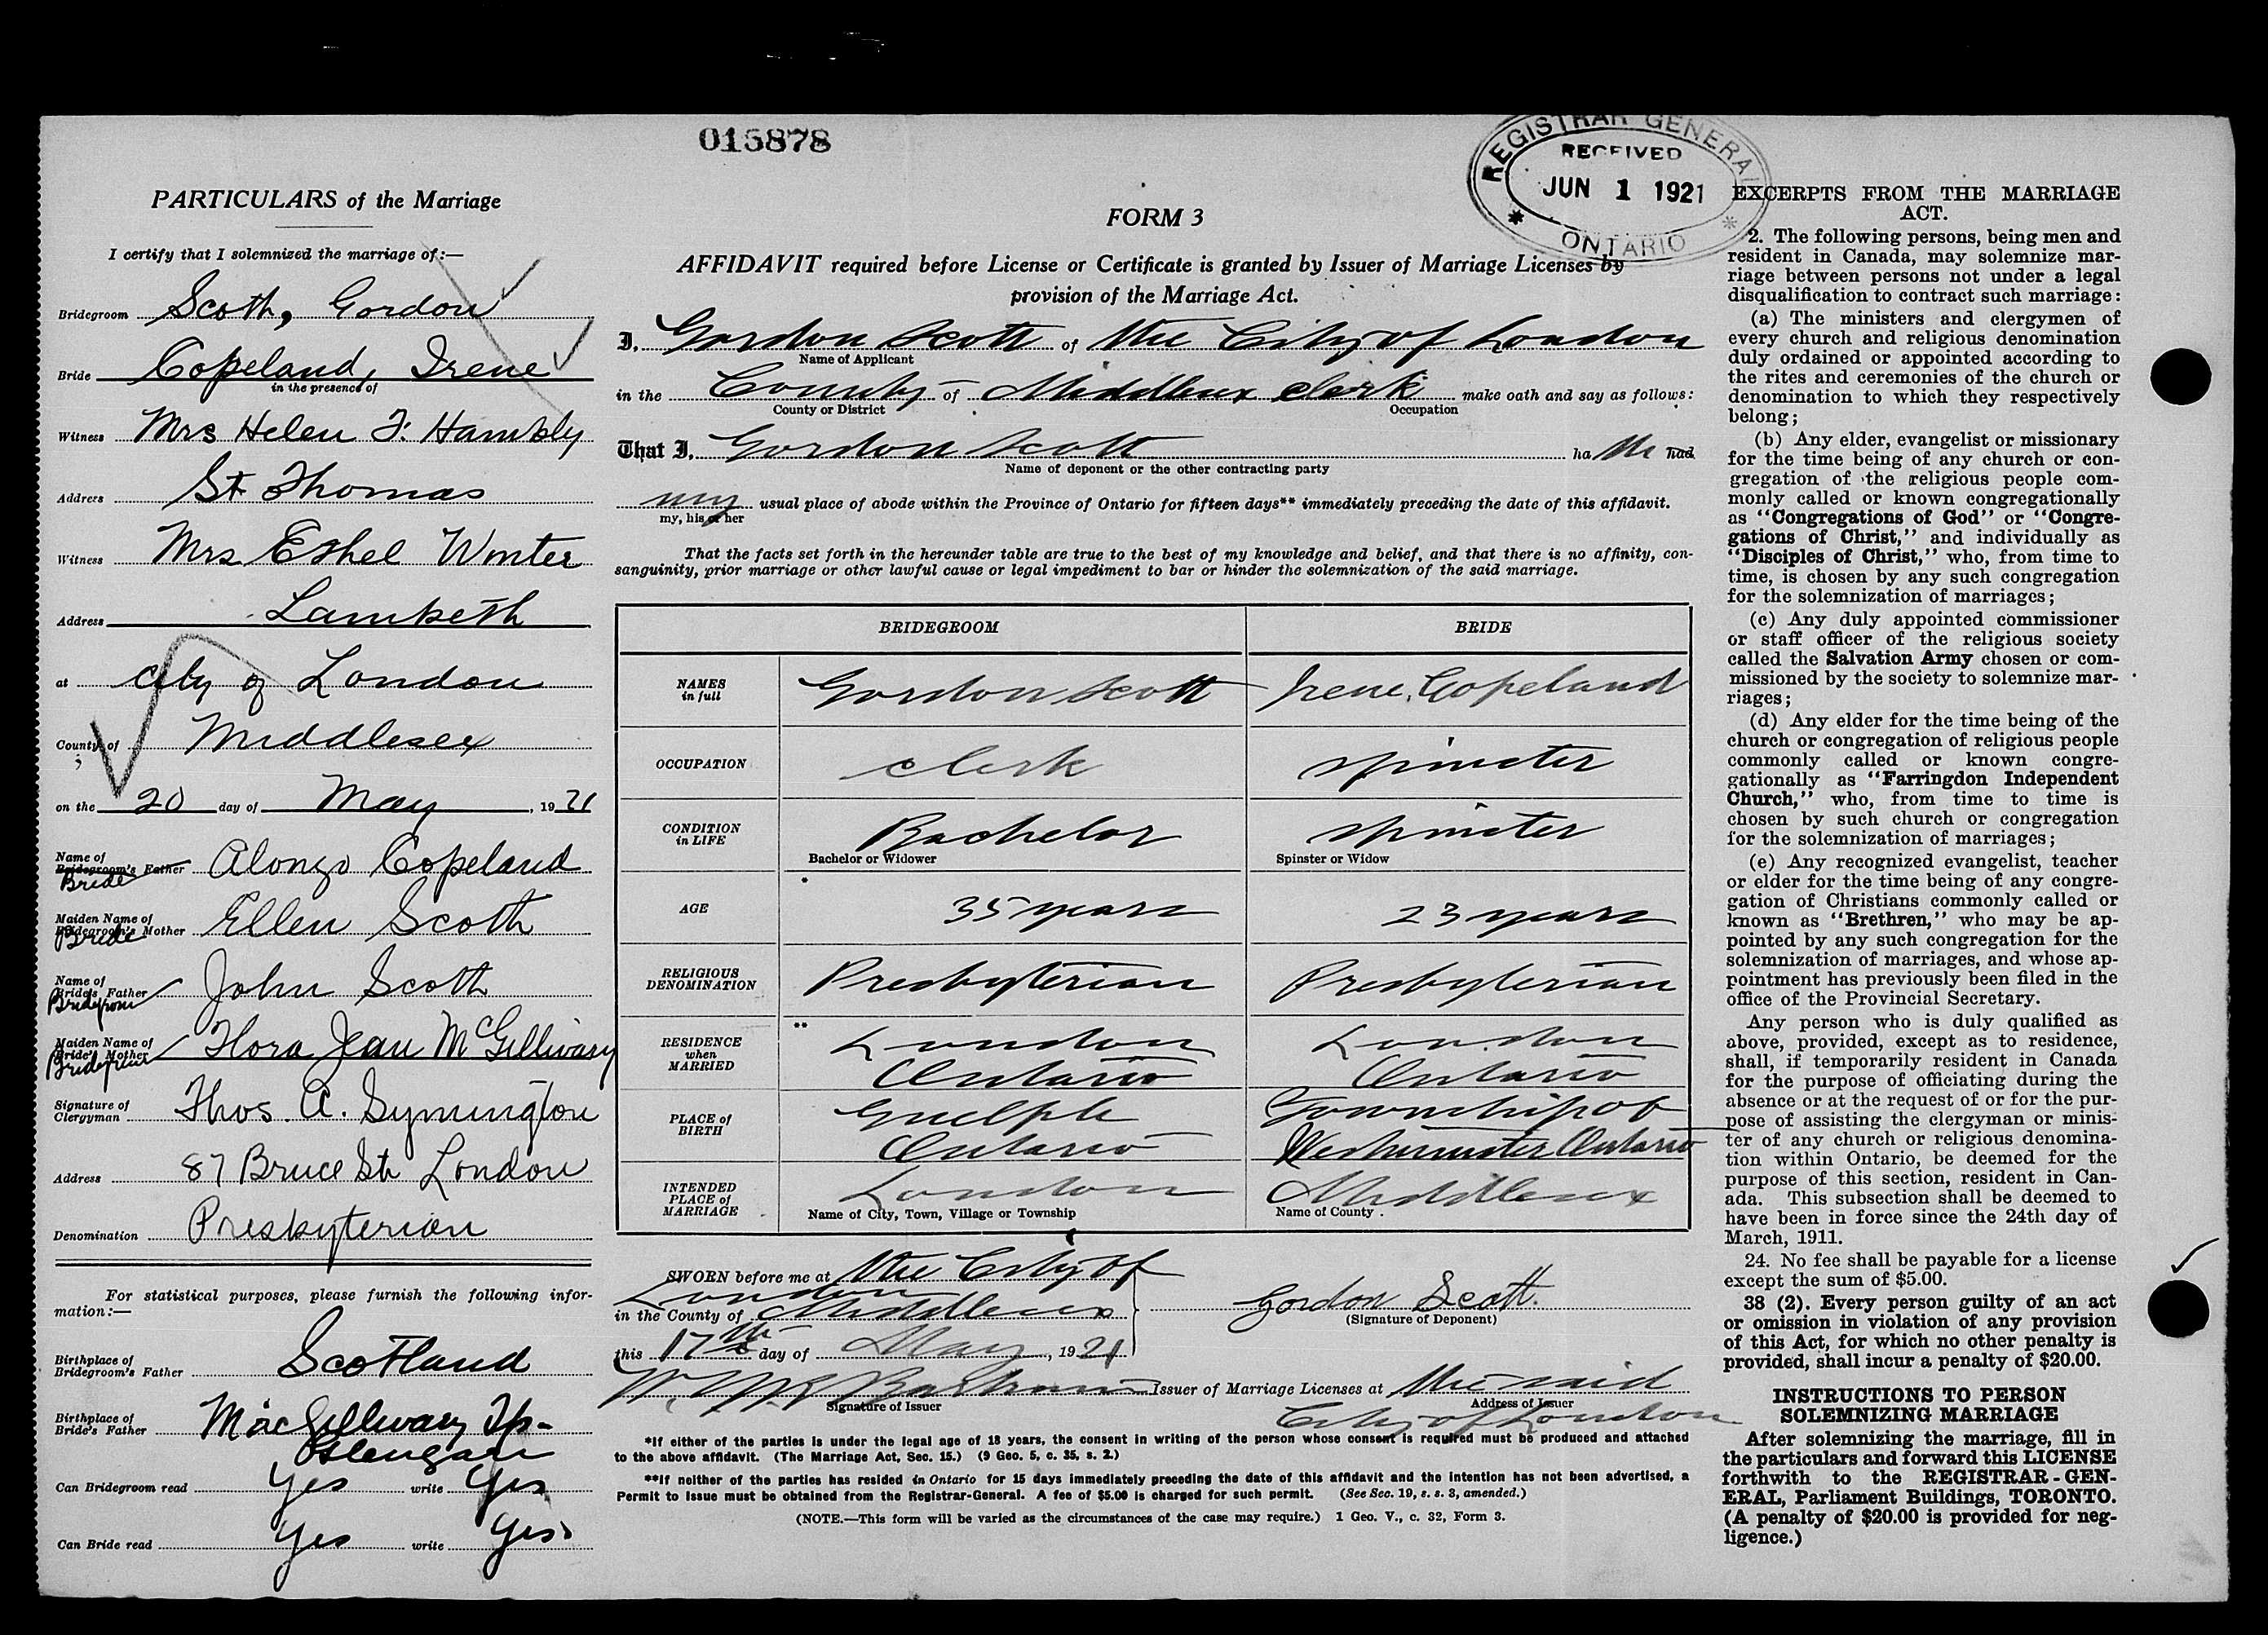 015878
REGISTRAR GENERAL
RECEIVED
JUN 1 1921
ONTARIO
PARTICULARS of the Marriage
I certify that I solemnized the marriage of:—
Bridegroom Scott, Gordon
Bride Copeland, Irene
in the presence of
Witness Mrs Helen F. Hambly
Address St Thomas
Witness Mrs Ethel Winter
Address Lambeth
at City of London
County of Middlesex
on the 20 day of May, 1921
Name of
Bridegroom's Father Alonzo Copeland
Bride
Maiden Name of
Bridegroom's Mother Ellen Scott
Bride
Name of
Bride's Father John Scott
Bridegroom
Maiden Name of
Bride's Mother Flora Jean McGillivary
Bridegroom
Signature of
Clergyman Thos. A. Symington
Address 87 Bruce St London
Denomination Presbyterian
For statistical purposes, please furnish the following infor-
mation:—
Birthplace of
Bridegroom's Father Scotland
Birthplace of
Bride's Father MacGillivary Tp-
Can Bridegroom read Yes write Yes
Can Bride read Yes write Yes
FORM 3
AFFIDAVIT required before License or Certificate is granted by Issuer of Marriage Licenses by
provision of the Marriage Act.
I, Gordon Scott of the City of London
Name of Applicant
in the County of Middlesex clerk make oath and say as follows:
County or District Occupation
That I, Gordon Scott ha had
Name of deponent or the other contracting party
my usual place of abode within the Province of Ontario for fifteen days** immediately preceding the date of this affidavit.
my, his or her
That the facts set forth in the hereunder table are true to the best of my knowledge and belief, and that there is no affinity, con-
sanguinity, prior marriage or other lawful cause or legal impediment to bar or hinder the solemnization of the said marriage.
BRIDEGROOM BRIDE
NAMES in full Gordon Scott Irene Copeland
OCCUPATION clerk spinster
CONDITION in LIFE Bachelor spinster
Bachelor or Widower Spinster or Widow
AGE * 35 years 23 years
RELIGIOUS DENOMINATION Presbyterian Presbyterian
RESIDENCE when MARRIED ** London Ontario London Ontario
PLACE of BIRTH Guelph Ontario Township of Westminster Ontario
INTENDED PLACE of MARRIAGE London Middlesex
Name of City, Town, Village or Township Name of County.
SWORN before me at the City of
London
in the County of Middlesex
this 17th day of May, 1921
Gordon Scott.
(Signature of Deponent)
Issuer of Marriage Licenses at the said
Signature of Issuer Address of Issuer
City of London
*If either of the parties is under the legal age of 18 years, the consent in writing of the person whose consent is required must be produced and attached
to the above affidavit. (The Marriage Act, Sec. 15.) (9 Geo. 5, c. 35, s. 2.)
**If neither of the parties has resided in Ontario for 15 days immediately preceding the date of this affidavit and the intention has not been advertised, a
Permit to Issue must be obtained from the Registrar-General. A fee of $5.00 is charged for such permit. (See Sec. 19, s. s. 3, amended.)
(NOTE.—This form will be varied as the circumstances of the case may require.) 1 Geo. V., c. 32, Form 3.
EXCERPTS FROM THE MARRIAGE
ACT.
2. The following persons, being men and
resident in Canada, may solemnize mar-
riage between persons not under a legal
disqualification to contract such marriage:
(a) The ministers and clergymen of
every church and religious denomination
duly ordained or appointed according to
the rites and ceremonies of the church or
denomination to which they respectively
belong;
(b) Any elder, evangelist or missionary
for the time being of any church or con-
gregation of the religious people com-
monly called or known congregationally
as "Congregations of God" or "Congre-
gations of Christ," and individually as
"Disciples of Christ," who, from time to
time, is chosen by any such congregation
for the solemnization of marriages;
(c) Any duly appointed commissioner
or staff officer of the religious society
called the Salvation Army chosen or com-
missioned by the society to solemnize mar-
riages;
(d) Any elder for the time being of the
church or congregation of religious people
commonly called or known congre-
gationally as "Farringdon Independent
Church," who, from time to time is
chosen by such church or congregation
for the solemnization of marriages;
(e) Any recognized evangelist, teacher
or elder for the time being of any congre-
gation of Christians commonly called or
known as "Brethren," who may be ap-
pointed by any such congregation for the
solemnization of marriages, and whose ap-
pointment has previously been filed in the
office of the Provincial Secretary.
Any person who is duly qualified as
above, provided, except as to residence,
shall, if temporarily resident in Canada
for the purpose of officiating during the
absence or at the request of or for the pur-
pose of assisting the clergyman or minis-
ter of any church or religious denomina-
tion within Ontario, be deemed for the
purpose of this section, resident in Can-
ada. This subsection shall be deemed to
have been in force since the 24th day of
March, 1911.
24. No fee shall be payable for a license
except the sum of $5.00.
38 (2). Every person guilty of an act
or omission in violation of any provision
of this Act, for which no other penalty is
provided, shall incur a penalty of $20.00.
INSTRUCTIONS TO PERSON
SOLEMNIZING MARRIAGE
After solemnizing the marriage, fill in
the particulars and forward this LICENSE
forthwith to the REGISTRAR-GEN-
ERAL, Parliament Buildings, TORONTO.
(A penalty of $20.00 is provided for neg-
ligence.)